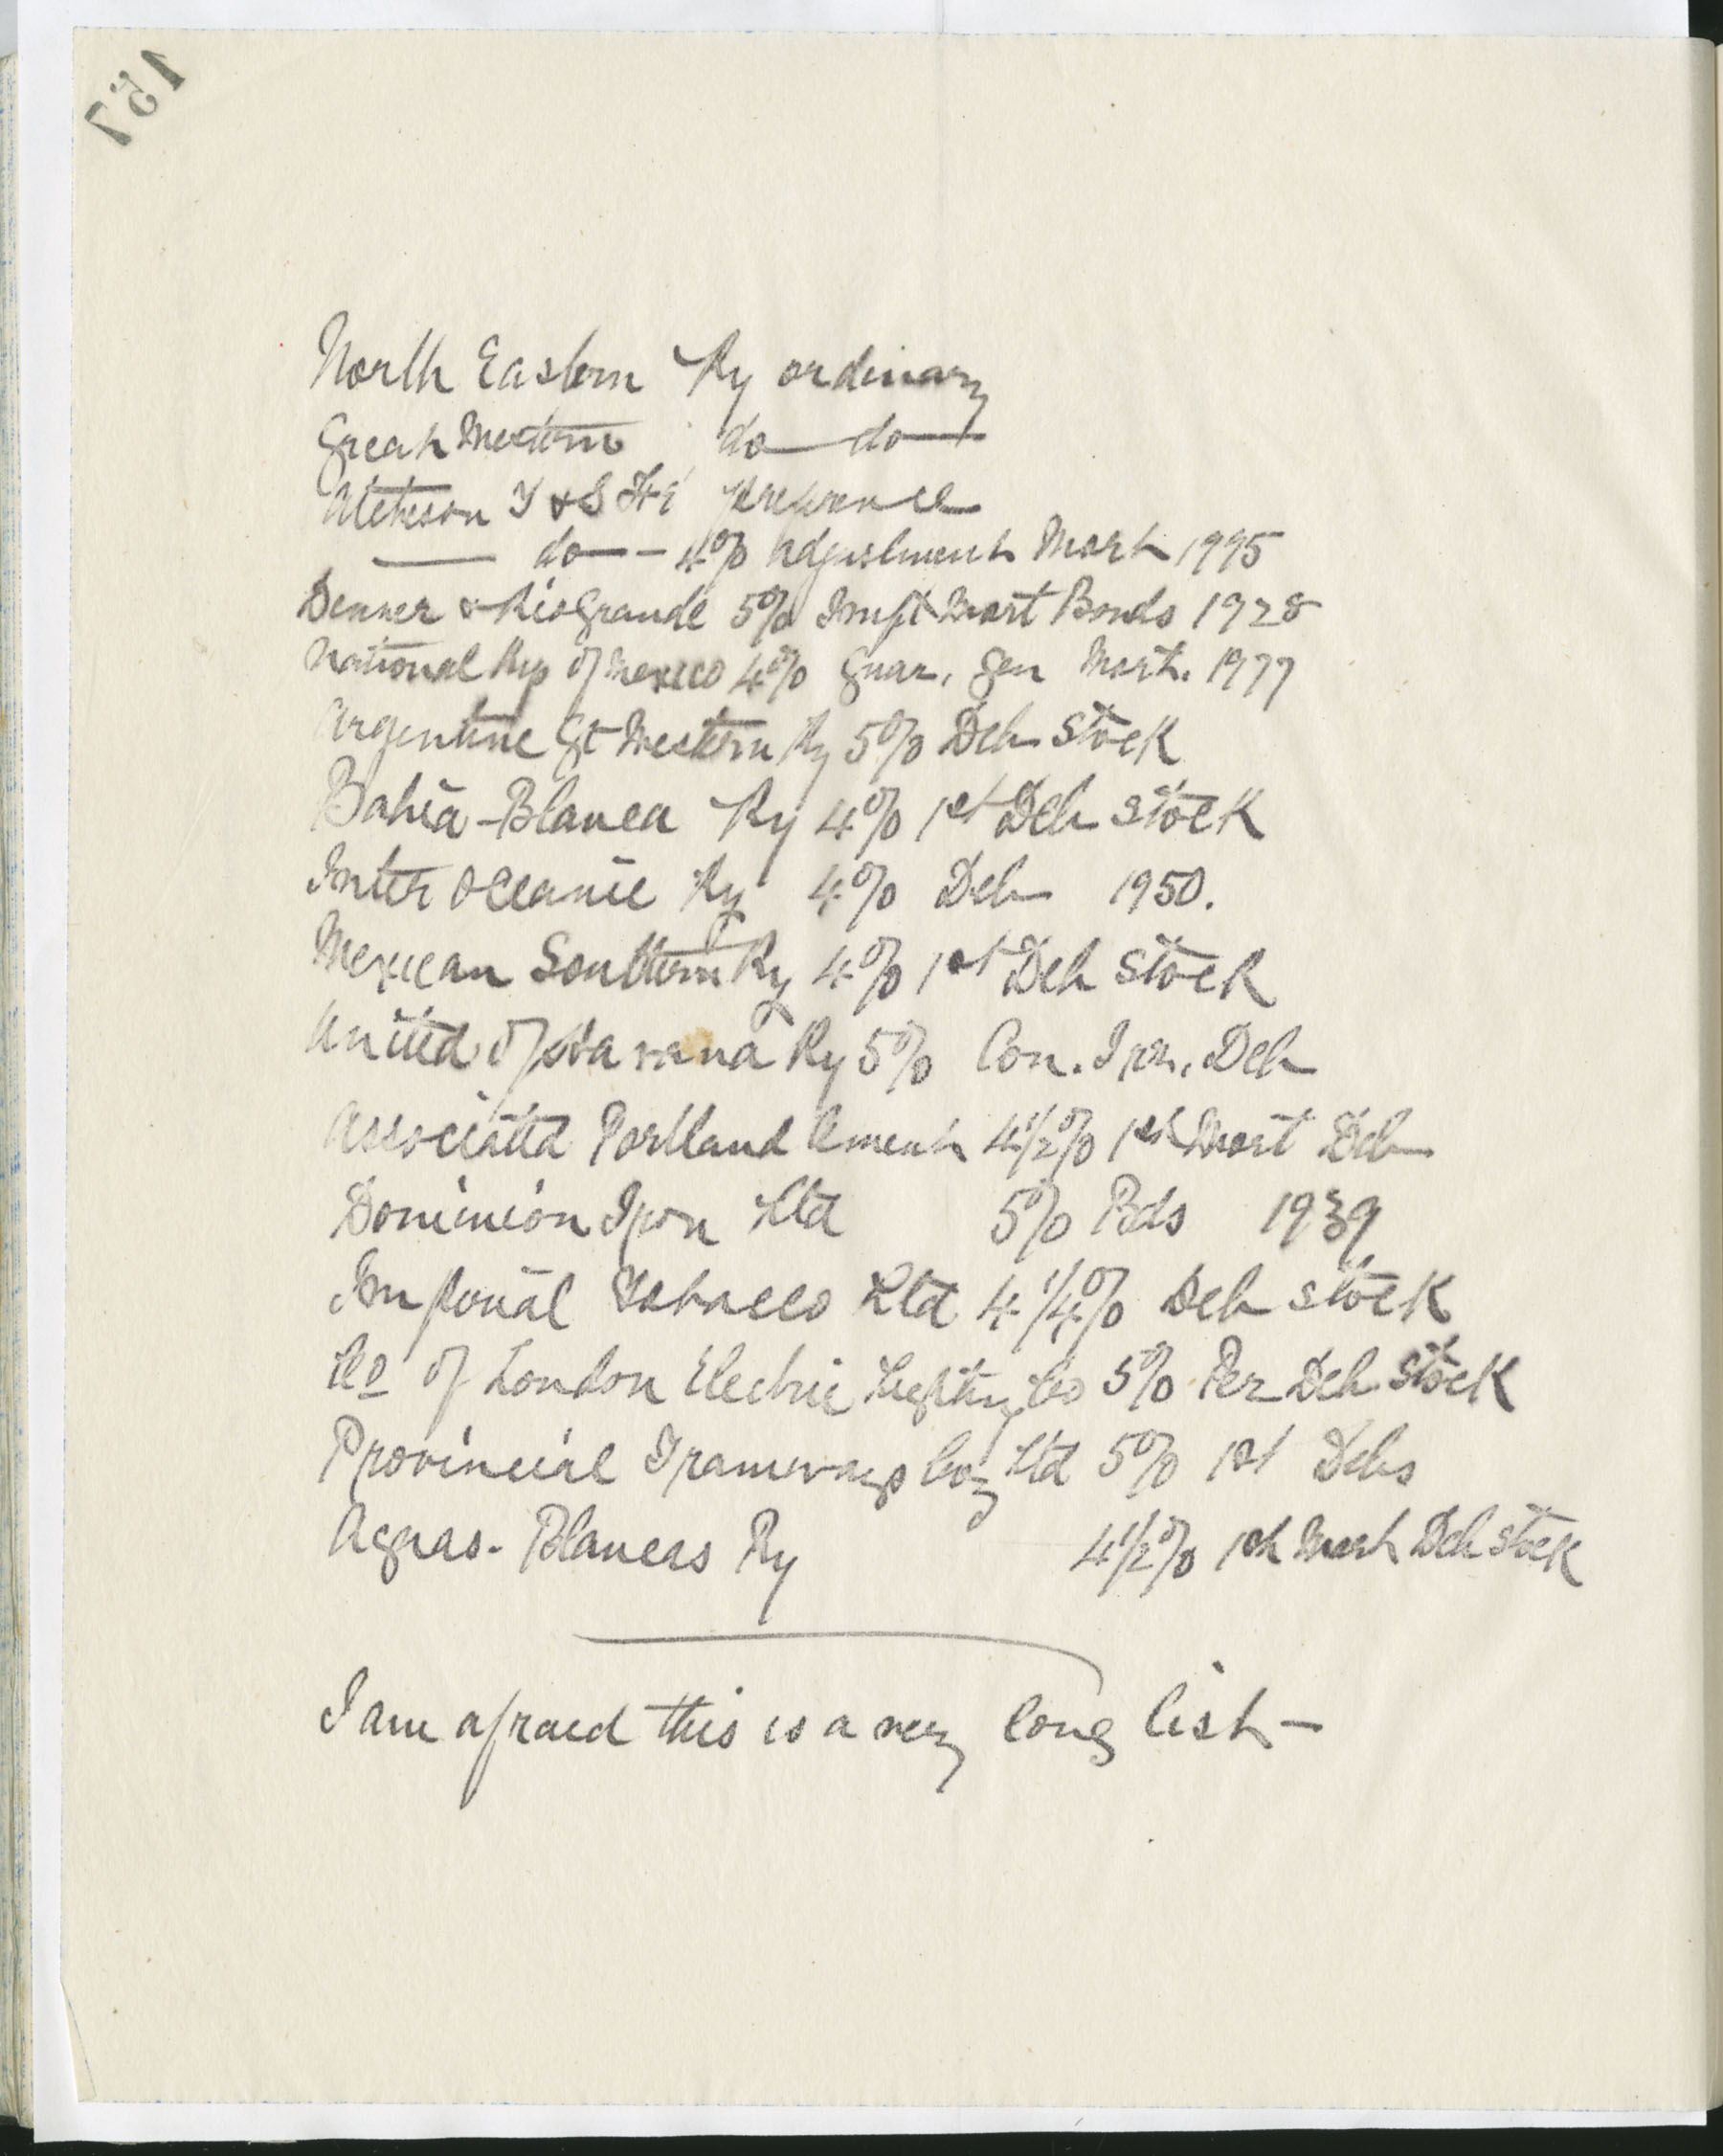 157
North Eastern Ry ordinary
Great Western do do
Atcheson T & S Fé preference
do — 4% Adjustment Mort 1995
Denver & Rio Grande 5% Impt Mort Bonds 1928
National Rys of Mexico 4% Guar. Gen Mort. 1977
Argentine Gt Western Ry 5% Deb Stock
Bahia-Blanca Ry 4% 1st Deb Stock
Inter Oceanic Ry 4% Deb 1950.
Mexican Southern Ry 4% 1st Deb Stock
United of Havana Ry 5% Con. Irr. Deb
Associated Portland Cement 4½% 1st Mort Deb
Dominion Iron Ltd 5% Bds 1939
Imperial Tobacco Ltd 4¼% Deb Stock
Co of London Electric Lighting Co 5% Per Deb Stock
Provincial Tramways Coy Ltd 5% 1st Debs
Aguas-Blancas Ry 4½% 1st Mort Deb Stock
I am afraid this is a very long list —